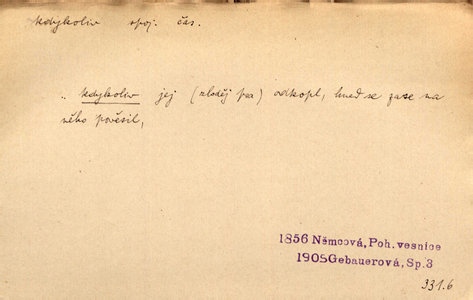 kdykoliv spoj. čas.
„ kdykoliv jej (zloděj psa) odkopl, hned se zase na
něho pověsil,
1856 Němcová, Poh. vesnice
1905 Gebauerová, Sp.3
331.6